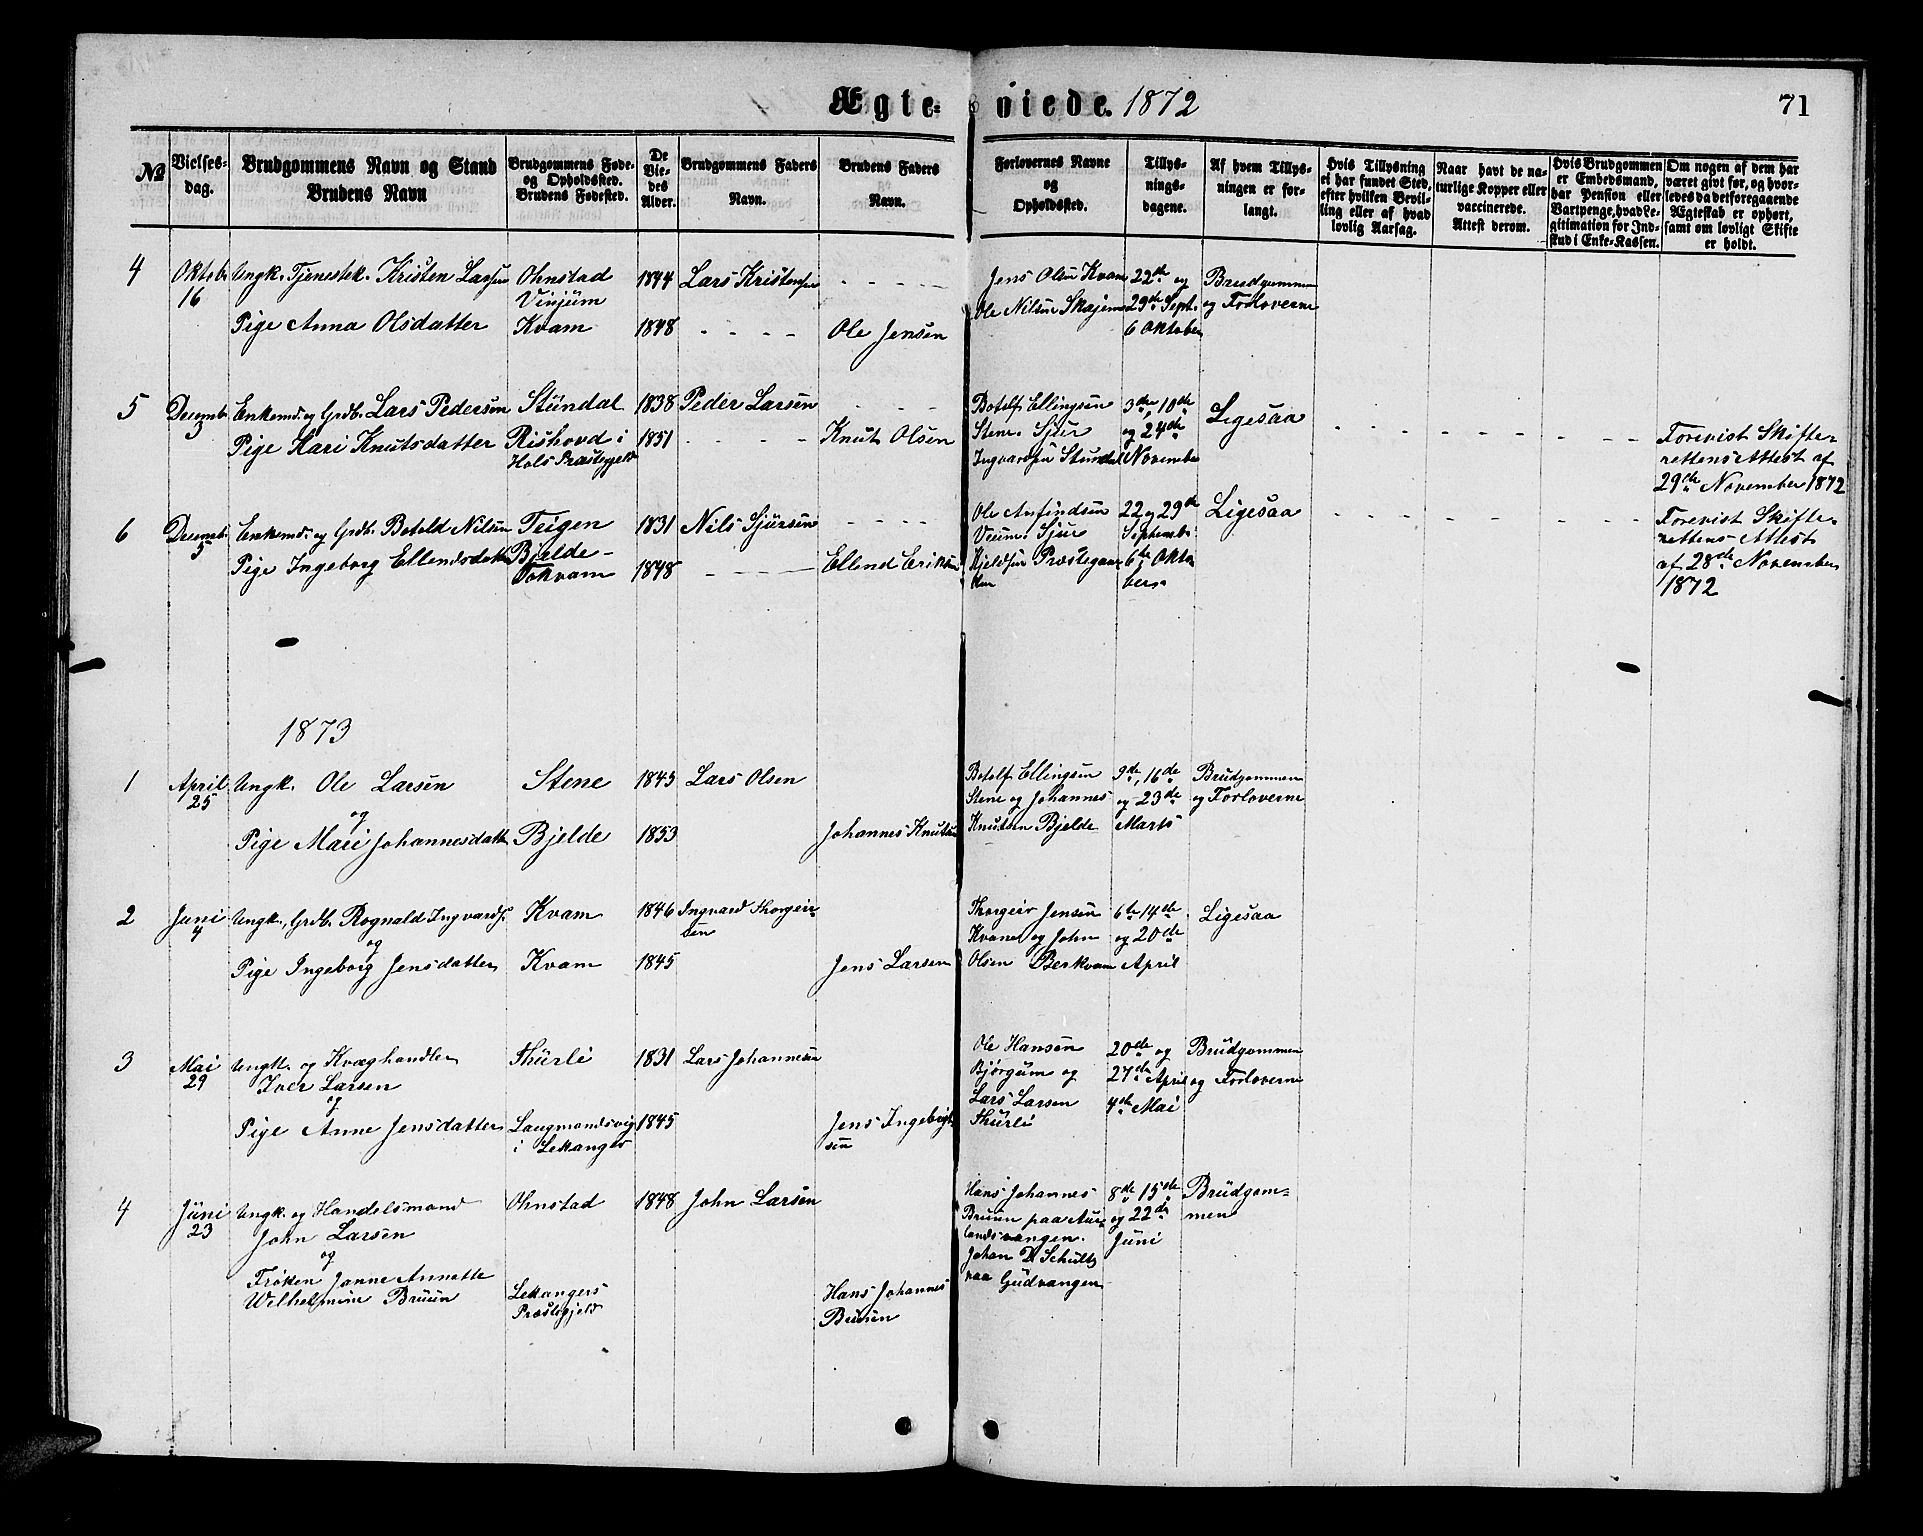 Ægte- viede. 1872
71
№ Vielses-dag. Brudgommens Navn og Stand Brudens Navn Brudgommens Føde- og Opholdssted. Brudens Fødested. De Vie-des Alder. Brudgommens Faders Navn. Brudens Faders Navn. Forlovernes Navne og Opholdssted. Tillys-nings-dagene. Af hvem Tillys-ningen er for-langt. Hvis Tillysning ei har fundet Sted, efter hvilken Bevil-ling eller af hvad lovlig Aarsag. Naar havt de na-turlige Kopper eller vaccinerede. Attest derom. Hvis Brudgommen er Embedsmand, har Pension eller Vartpenge, hvad Le-gitimation for Ind-skud i Enke-Kassen. Om nogen af dem har været gift før, og hvor-ledes da det foregaaende Ægteskab er ophørt, samt om lovligt Skifte er holdt.
4 Oktob. 16 Ungk. Tjenestek. Kristen Larsen Ohnstad Vinjum 1844 Lars Kristensen - - - - - Jens Olsen Kvam 22de og Brudgommen
Ole Nilsen Skajem 29de Sept. og Forloverne
Pige Anna Olsdatter Kvam 1848 - - - - Ole Jensen 6 Oktober
5 Decemb. 3 Enkemd. og Grdb. Lars Pedersen Stundal 1838 Peder Larsen - - - Botolf Ellingsen 3de, 10de Ligesaa
Pige Kari Knutsdatter Rishovd i 1851 - - - - Knut Olsen Stene. Sjur og 24de - - - - - - - - Forevist Skifte-
Hols Præstegjeld Ingvardsen Stundal November rettens Attest af
29de November 1872
6 Decemb. 5 Enkemd. og Grdb. Botold Nilsen Teigen 1831 Nils Sjursen - - - - Ole Anfindsen 22 og 29de Ligesaa - - - - - - - - Forevist Skifte-
Bjelde- Veum. Sjur Septemb. rettens Attest
Pige Ingeborg Ellendsdatter Tokvam 1848 - - - - Ellend Eriksen Kjeldsen Præstegaar- 6te Okto- af 28de November
den bers 1872
1873
1 April 25 Ungk. Ole Larsen Stene 1843 Lars Olsen Botolf Ellingsen 9de, 16de Brudgommen
og Stene og Johannes og 23de og Forloverne
Pige Mari Johannesdatter Bjelde 1853 Johannes Knutsen Knutsen Bjelde Marts
2 Juni 4 Ungk., Grdb. Rognald Ingvards. Kvam 1846 Ingvard Thorgeir- Thorgeir Jensen 6te 14de Ligesaa
og sen Kvam og John og 20de
Pige Ingeborg Jensdatter Kvam 1845 Jens Larsen Olsen Berkvam April
3 Mai 29 Ungk. og Kvæghandler Thurli 1831 Lars Johannesen Ole Hansen 20de og Brudgommen
Iver Larsen Bjørgum og 27de April og Forloverne
og Lars Larsen 4de Mai
Pige Anne Jensdatter Laugmandsvig 1845 Jens Ingebrigt- Thurli
i Lekanger sen
4 Juni 23 Ungk. og Handelsmand Ohnstad 1848 John Larsen Hans Johannes 8de 15de Brudgom-
John Larsen Bruun paa Aur- og 22de men
og landsvangen. Juni
Frøken Janne Annette Johan D. Schultz
Wilhelmine Bruun Lekangers Hans Johannes paa Gudvangen
Præstegjeld Bruun